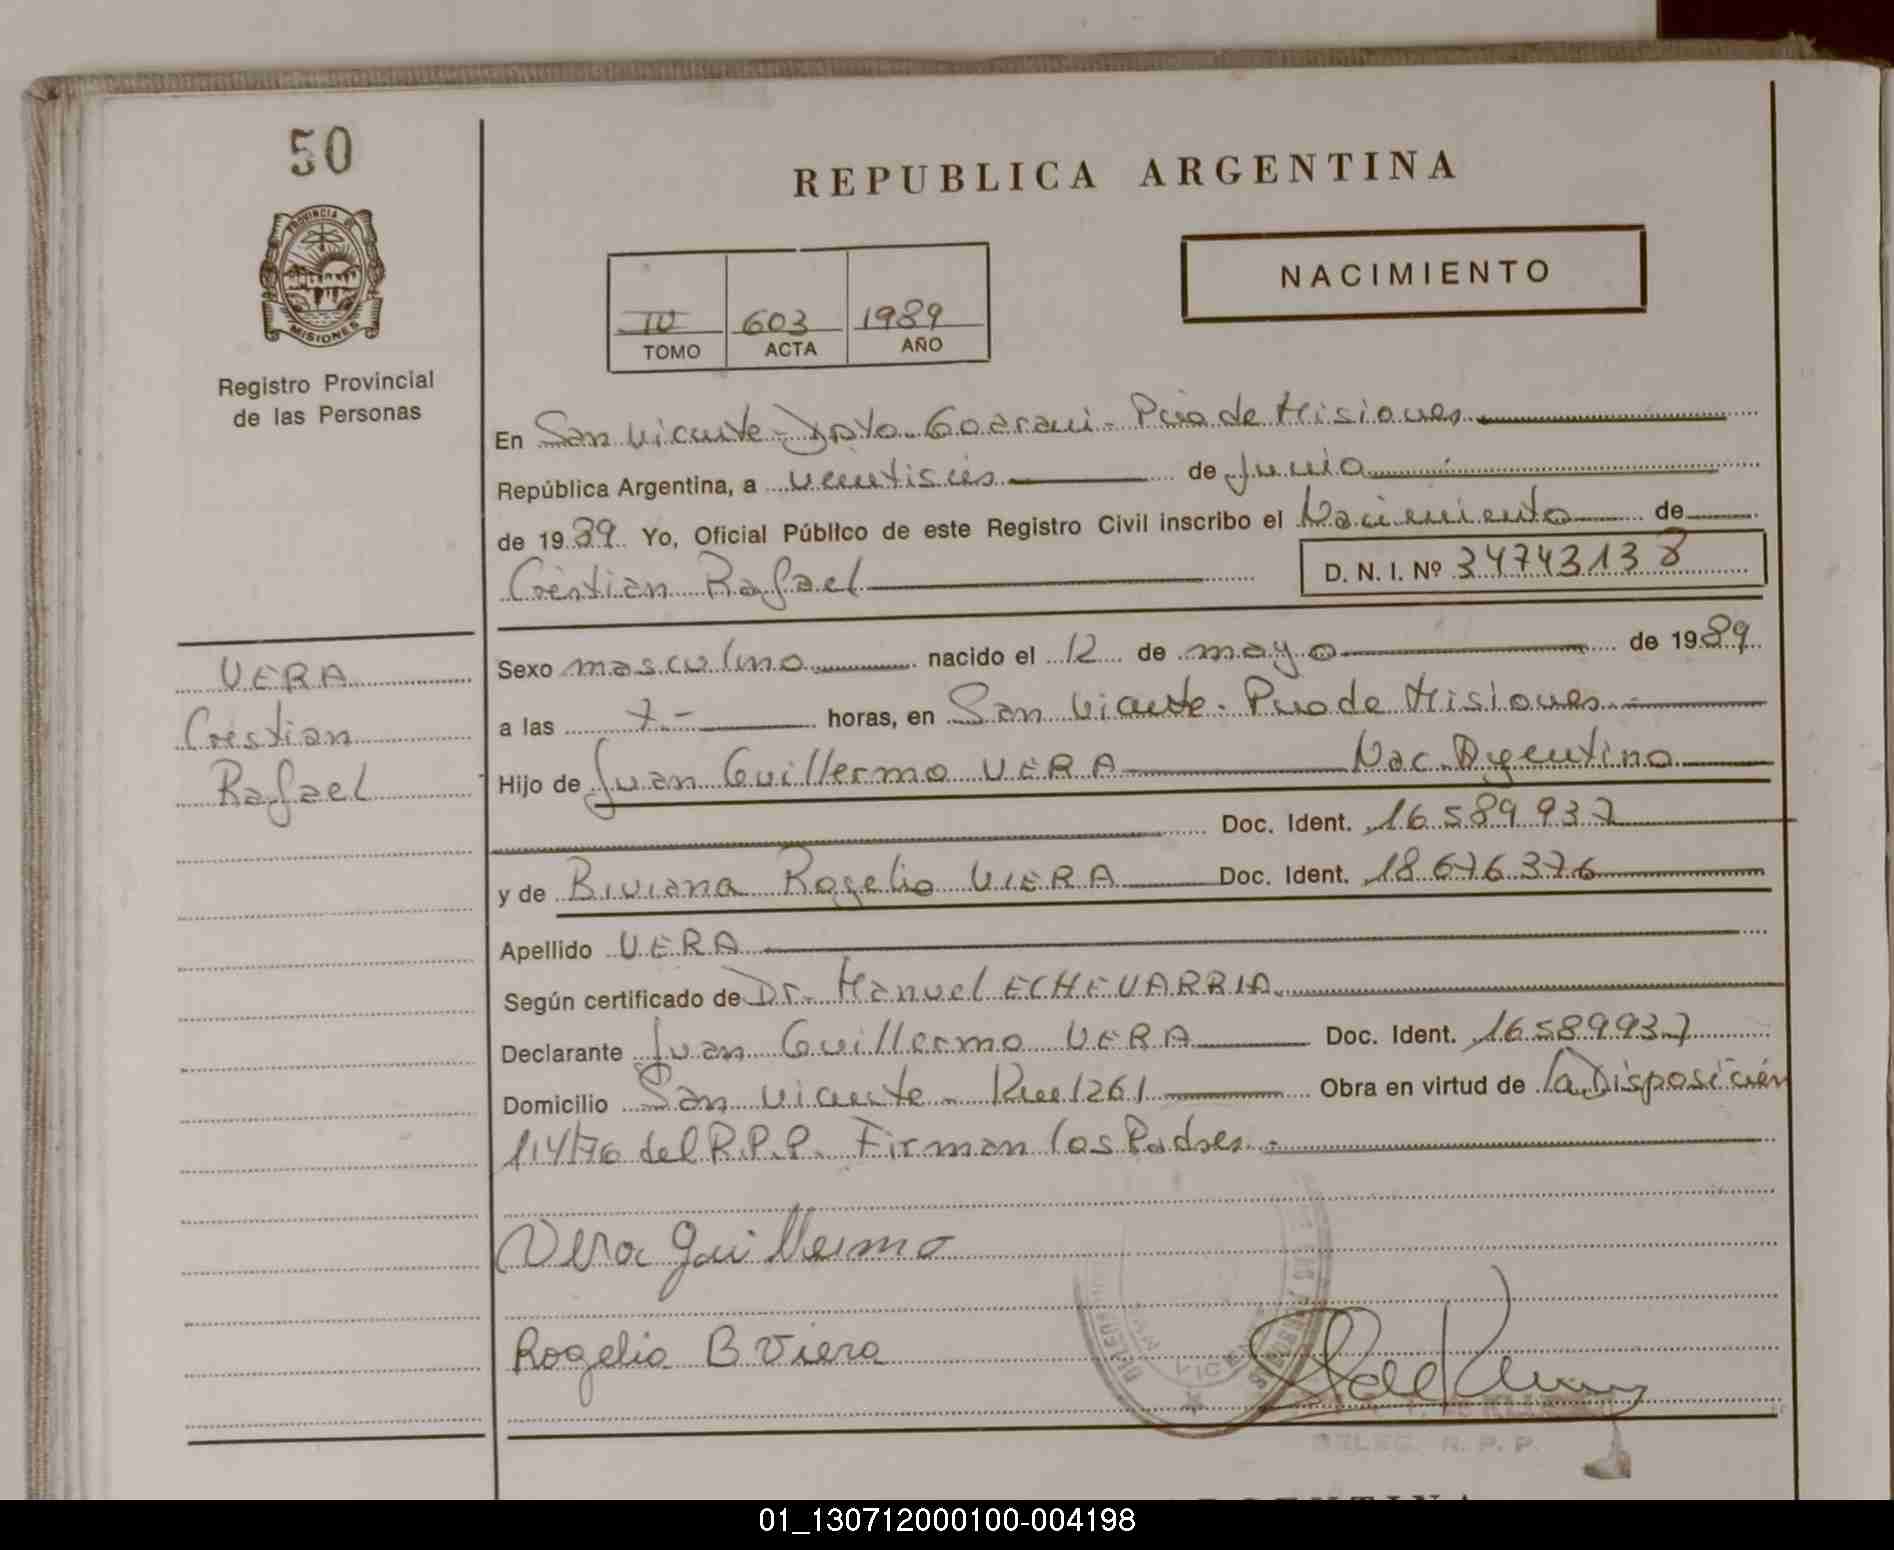 50
PROVINCIA DE
MISIONES
Registro Provincial
de las Personas
REPUBLICA ARGENTINA
NACIMIENTO
IV 603 1989
TOMO ACTA AÑO
En San Vicente - Dpto. Guaraní - Pcia de Misiones
República Argentina, a veintiseis de Junio
de 1989 Yo, Oficial Público de este Registro Civil inscribo el Nacimiento de
Cristian Rafael D. N. I. Nº 34743138
VERA
Cristian
Rafael
Sexo masculino nacido el 12 de mayo de 1989
a las 7.- horas, en San Vicente - Pcia de Misiones
Hijo de Juan Guillermo VERA Nac. Argentino
Doc. Ident. 16589937
y de Biviana Rogelia VIERA Doc. Ident. 18676376
Apellido VERA
Según certificado de Dr. Manuel ECHEVARRIA
Declarante Juan Guillermo VERA Doc. Ident. 16589937
Domicilio San Vicente - Km 1261 Obra en virtud de la Disposición
114/76 del R.P.P. Firman los Padres.-
Vera Guillermo
Rogelia B Viera
DELEG. R. P. P.
01_130712000100-004198